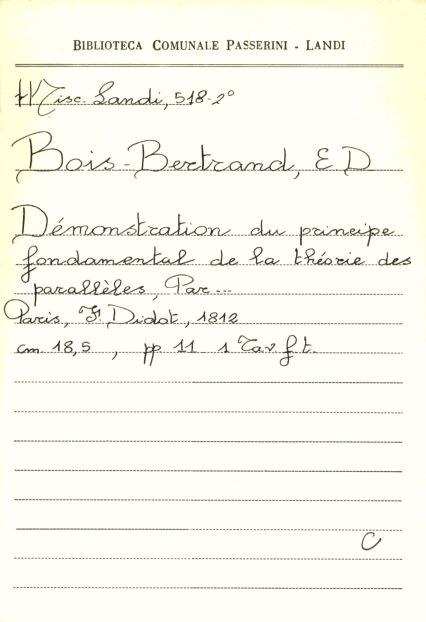 BIBLIOTECA COMUNALE PASSERINI - LANDI
Misc. Landi, 518-2°
Bois-Bertrand, E D
Démonstration du principe
fondamental de la théorie des
parallèles, Par ...
Paris, F. Didot, 1812
cm. 18,5 , pp 11 1 Tav. f. t.
C